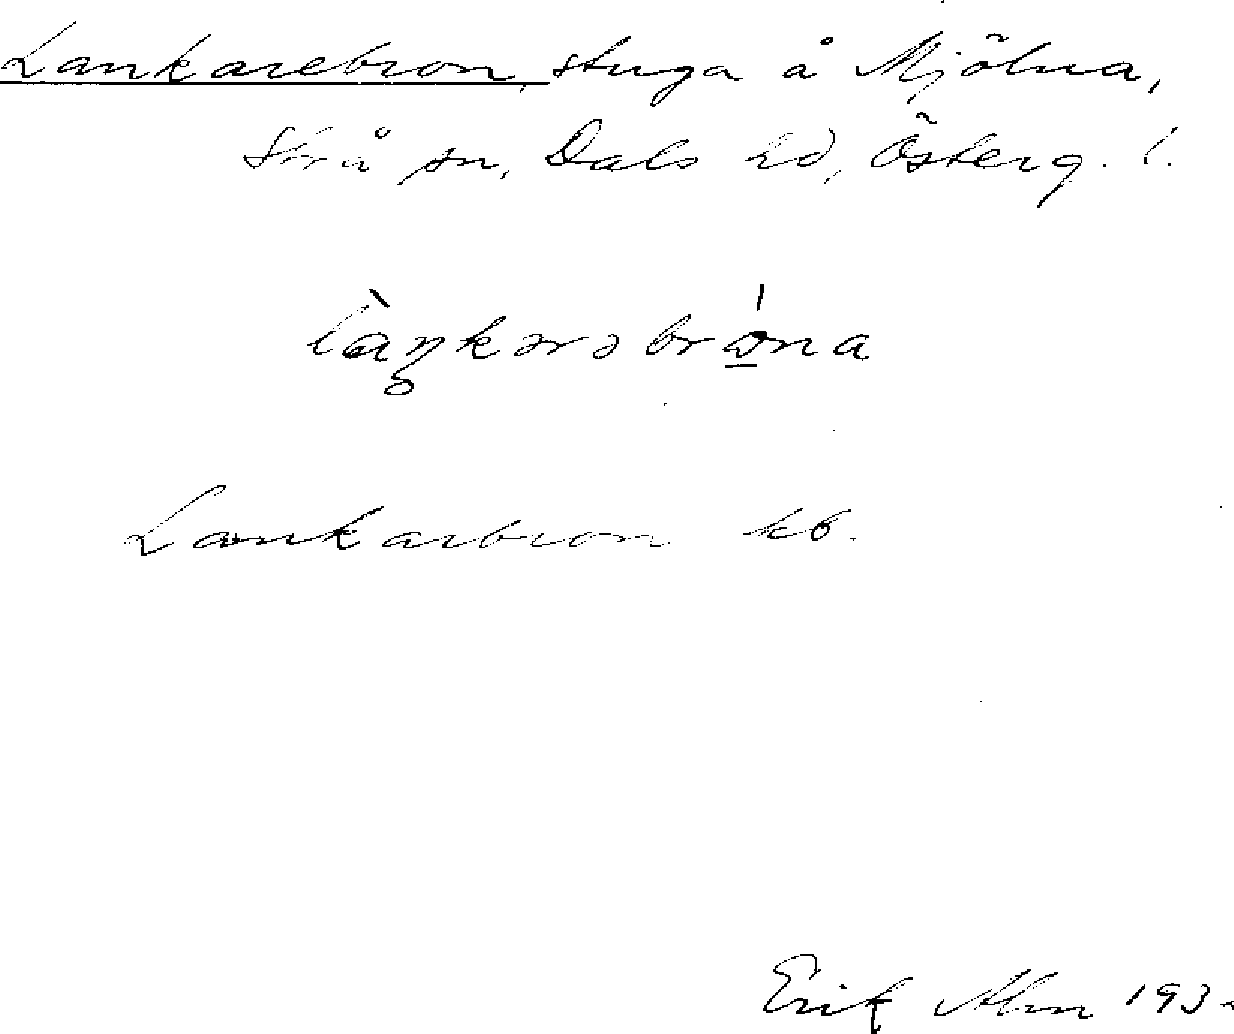 Lankarebron, stuga å Mjölna,
Strå sn, Dals hd, Österg. l.
làŋkərəbrώ̲na
Lankarbron kb.
Erik Alm 193